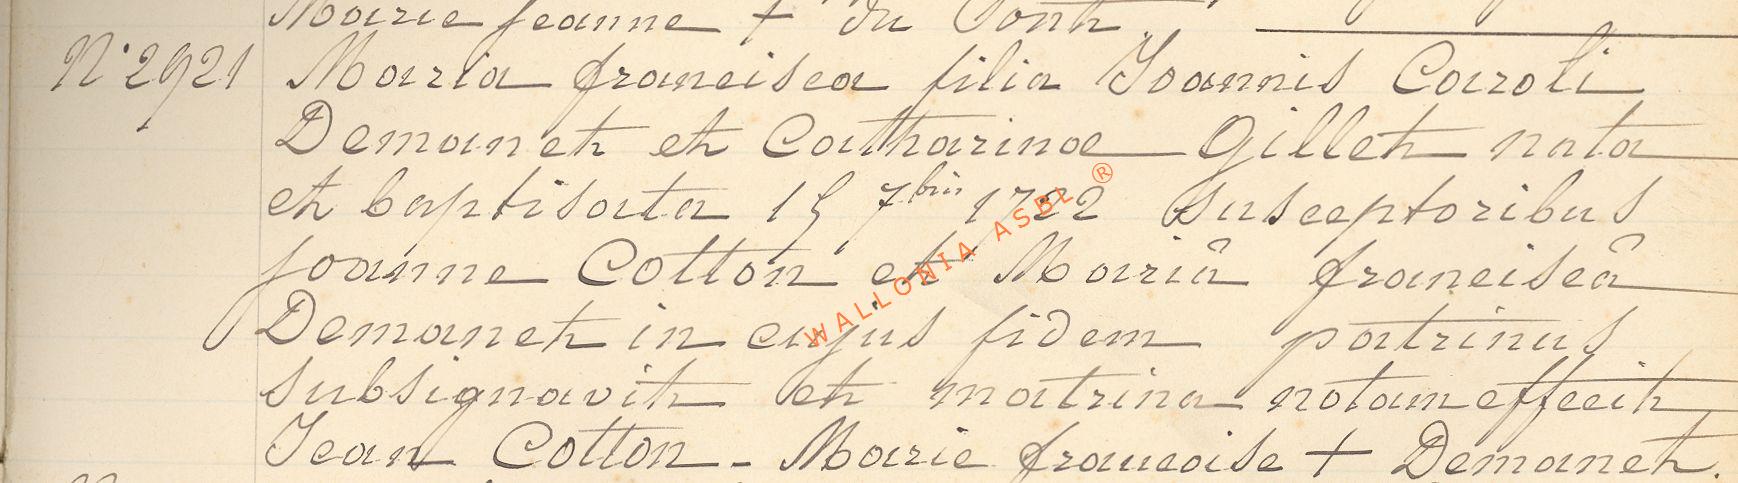 Marie Jeanne + du Pont
N° 2921 Maria francisca filia Joannis Caroli
Demanet et Catharinae Gillet nata
et baptisata 15 7bris 1722 Susceptoribus
Joanne Cotton et Mariâ franciscâ
Demanet in cujus fidem patrinus
subsignavit et matrina notam effecit
Jean Cotton - Marie francoise + Demanet.
WALLONIA ASBL ®